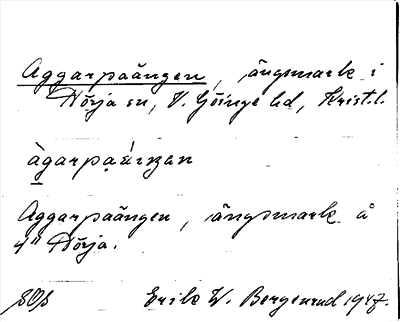 Aggarpaängen, ängsmark i
Nörja sn, V. Göinge hd, Krist.l.
àgarpaáiŋan
Aggarpaängen, ängsmark å
4" Nörja.
Erik W. Bergenrud 1947.